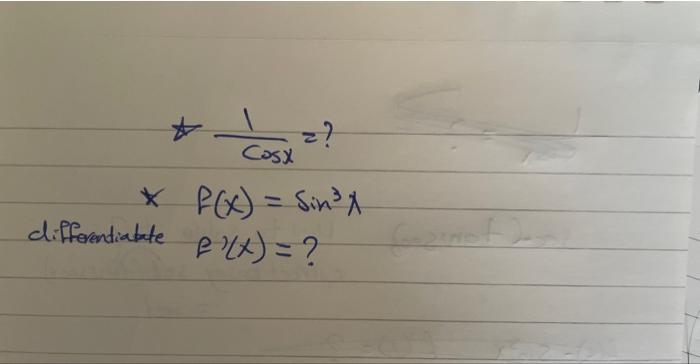 ☆ 1/cosx = ?
* f(x) = sin³x
differendiatate f'(x) = ?